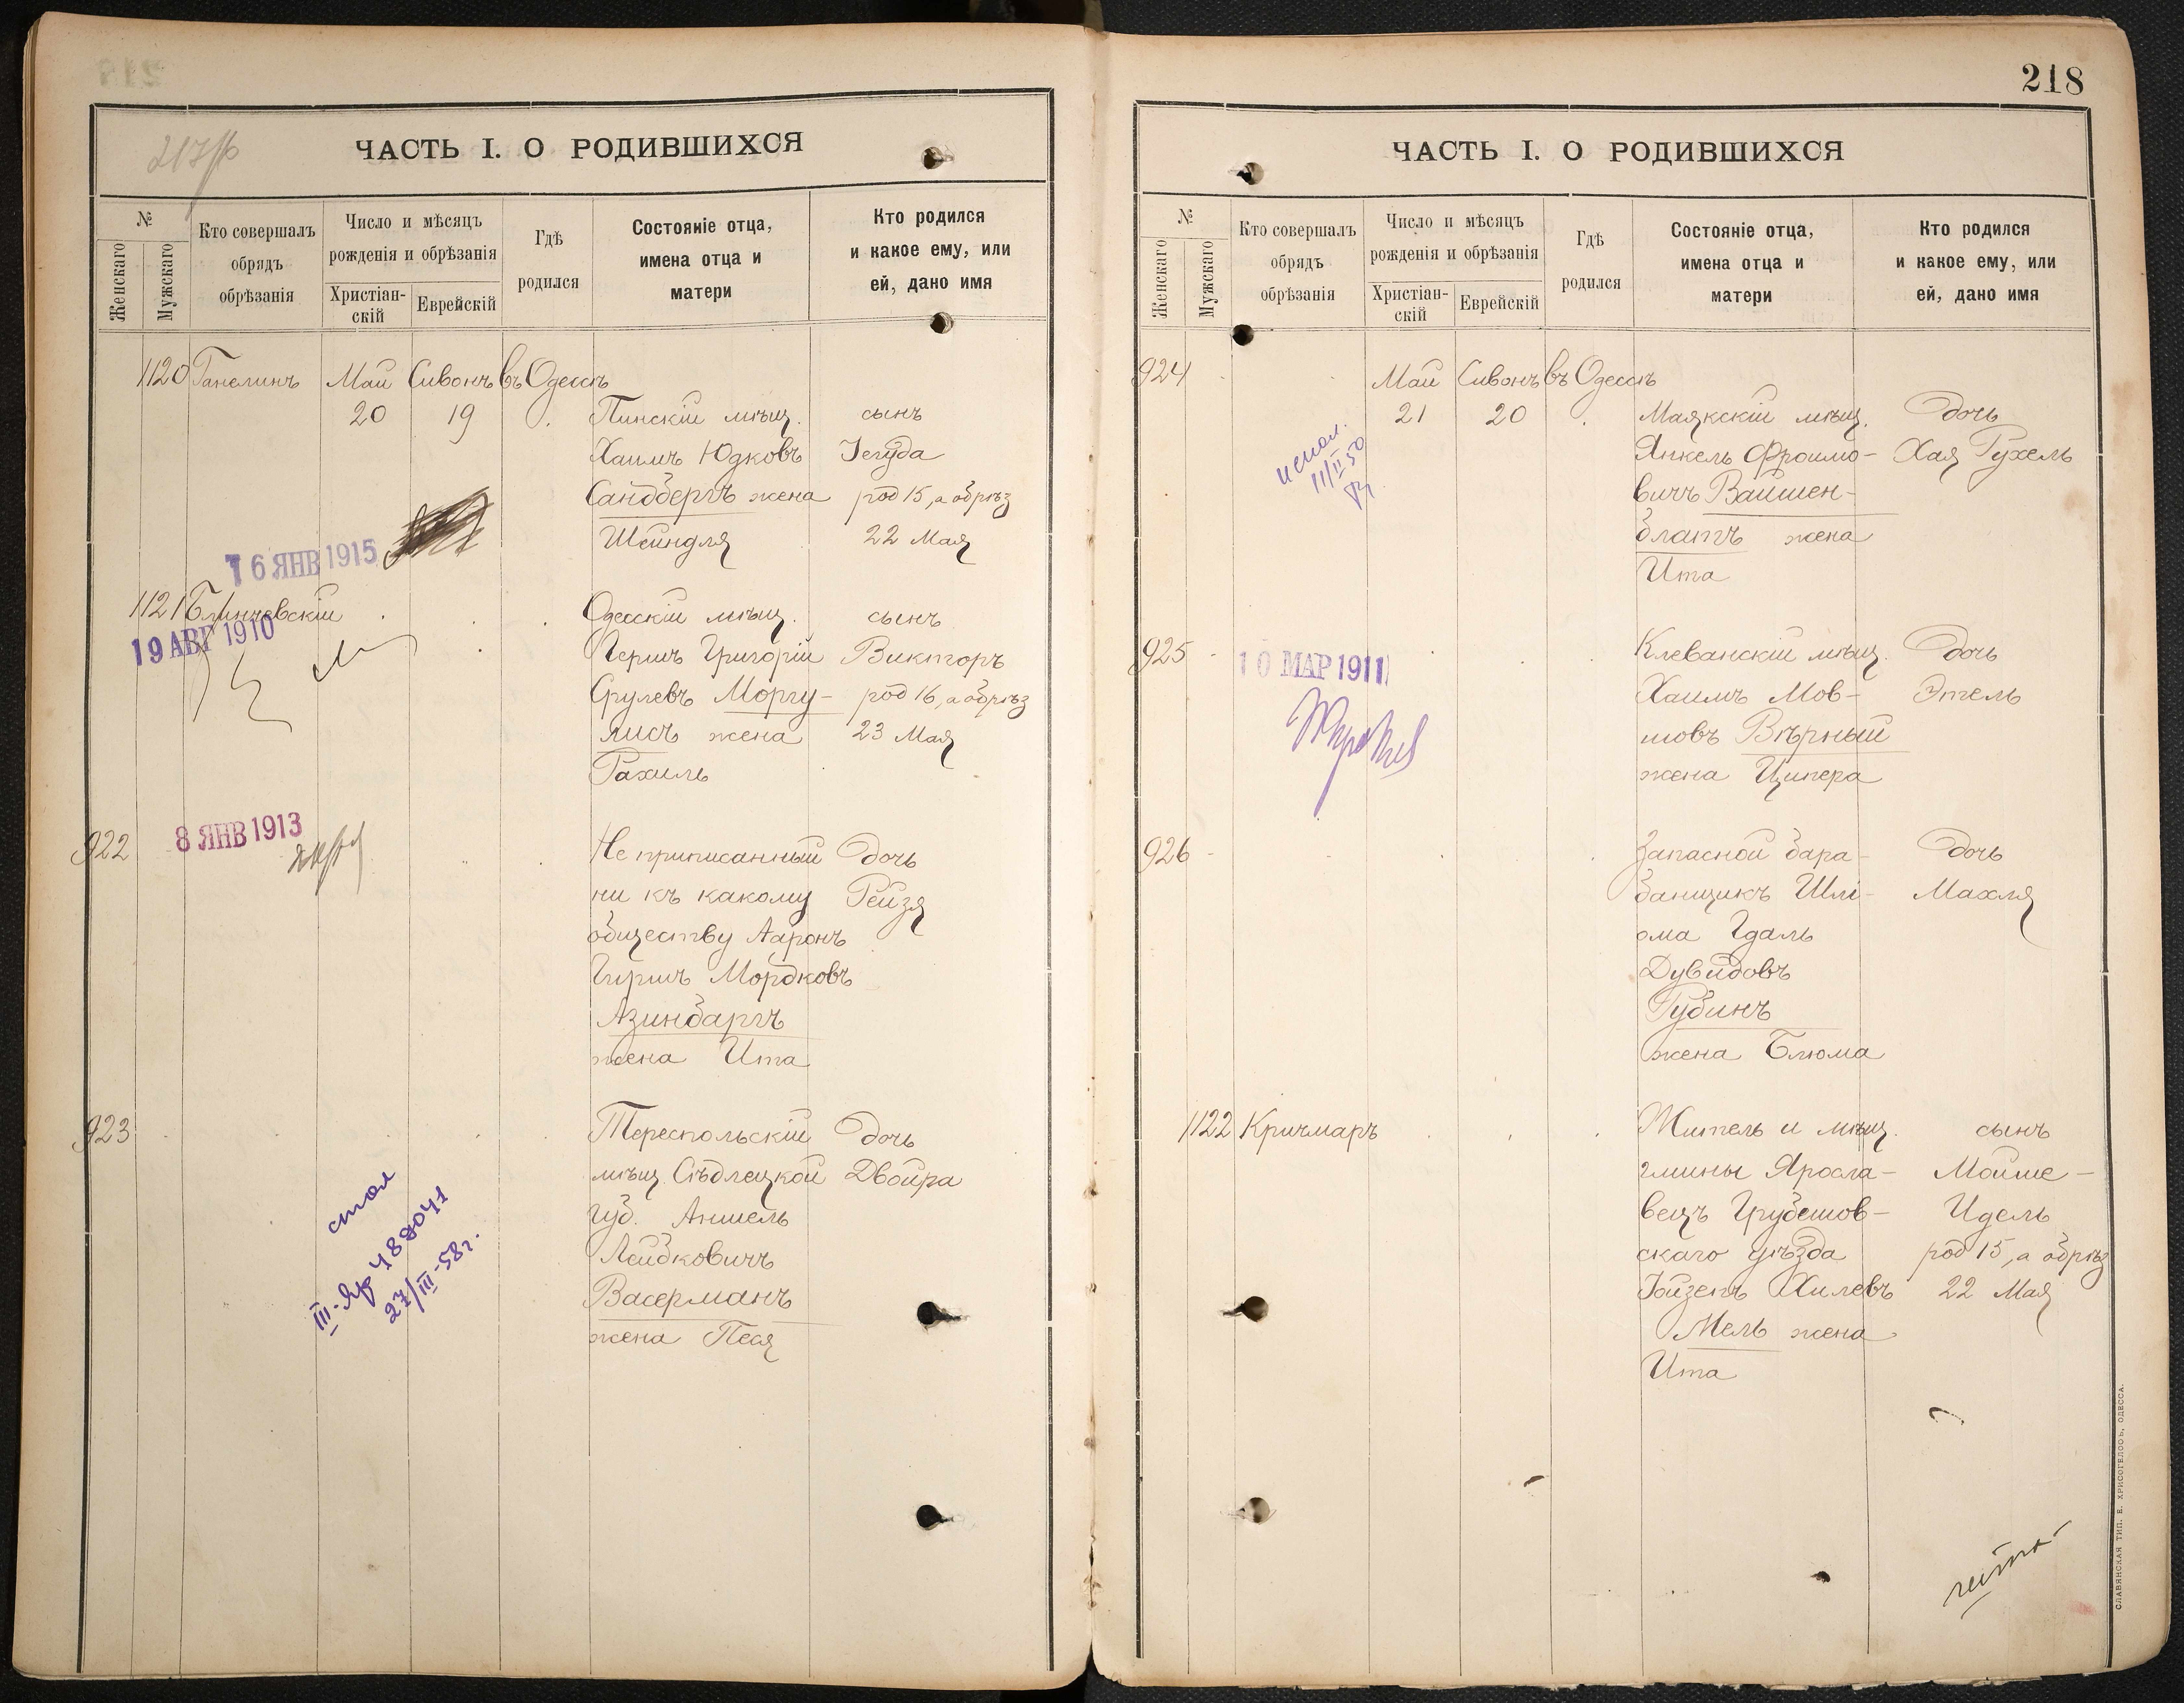 217 об
ЧАСТЬ I. О РОДИВШИХСЯ
№
Женскаго
Мужскаго
Кто совершалъ
обрядъ
обрѣзанія
Число и мѣсяцъ
рожденія и обрѣзанія
Христіан-
скій
Еврейскій
Гдѣ
родился
Состояніе отца,
имена отца и
матери
Кто родился
и какое ему, или
ей, дано имя
1120 Ганелинъ Май Сивонъ въ Одессѣ
20 19 Пинскій мѣщ. сынъ
Хаимъ Юдковъ Іегуда
Сандбергъ жена род 15, а обрѣз
Шейндля 22 Мая
16 ЯНВ 1915
1121 Блинчевскій Одесскій мѣщ. сынъ
19 АВГ 1910
Гершъ Григорій Викторъ
Срулевъ Моргу- род 16, а обрѣз
лисъ жена 23 Мая
Рахиль
8 ЯНВ 1913
922 Не приписанный дочь
ни къ какому Рейзя
обществу Ааронъ
Гиршъ Мордковъ
Азинбаргъ
жена Ита
923 Тереспольскій дочь
мѣщ. Сѣдлецкой Двойра
губ. Аншель
Лейбковичъ
Васерманъ
жена Песя
27/III-58г.
218
ЧАСТЬ I. О РОДИВШИХСЯ
№
Женскаго
Мужскаго
Кто совершалъ
обрядъ
обрѣзанія
Число и мѣсяцъ
рожденія и обрѣзанія
Христіан-
скій
Еврейскій
Гдѣ
родился
Состояніе отца,
имена отца и
матери
Кто родился
и какое ему, или
ей, дано имя
924 Май Сивонъ въ Одессѣ
21 20 Маякскій мѣщ. дочь
Янкель Фроимо- Хая Рухель
вичъ Вайшен-
блатъ жена
Ита
925 Клеванскій мѣщ. дочь
10 МАР 1911
Хаимъ Мов- Этель
шовъ Вѣрный
жена Ципера
926 Запасной бара- дочь
банщикъ Шлі- Махля
ома Гдаль
Дувидовъ
Рубинъ
жена Блюма
1122 Кричмаръ Житель и мѣщ. сынъ
гмины Яросла- Мойше-
вецъ Грубешов- Идель
скаго уѣзда род 15, а обрѣз
Іойзепъ Хилевъ 22 Мая
Мель жена
Ита
СЛАВЯНСКАЯ ТИП. Е. ХРИСОГЕЛОСЪ, ОДЕССА.